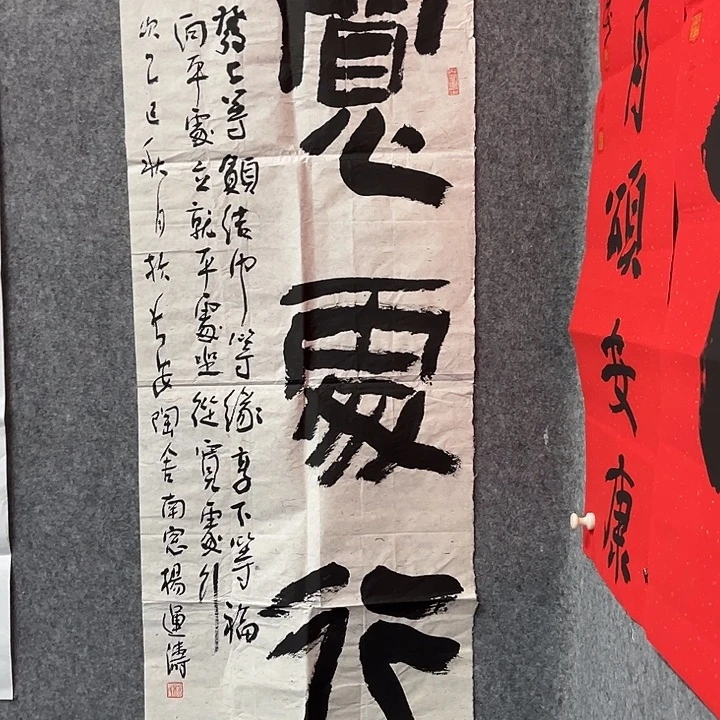 寬處行
發上等願結中等緣享下等福
向平處立就平處坐從寬處行
次乙巳秋月於长安陶舍南窓楊運濤
月頌安康